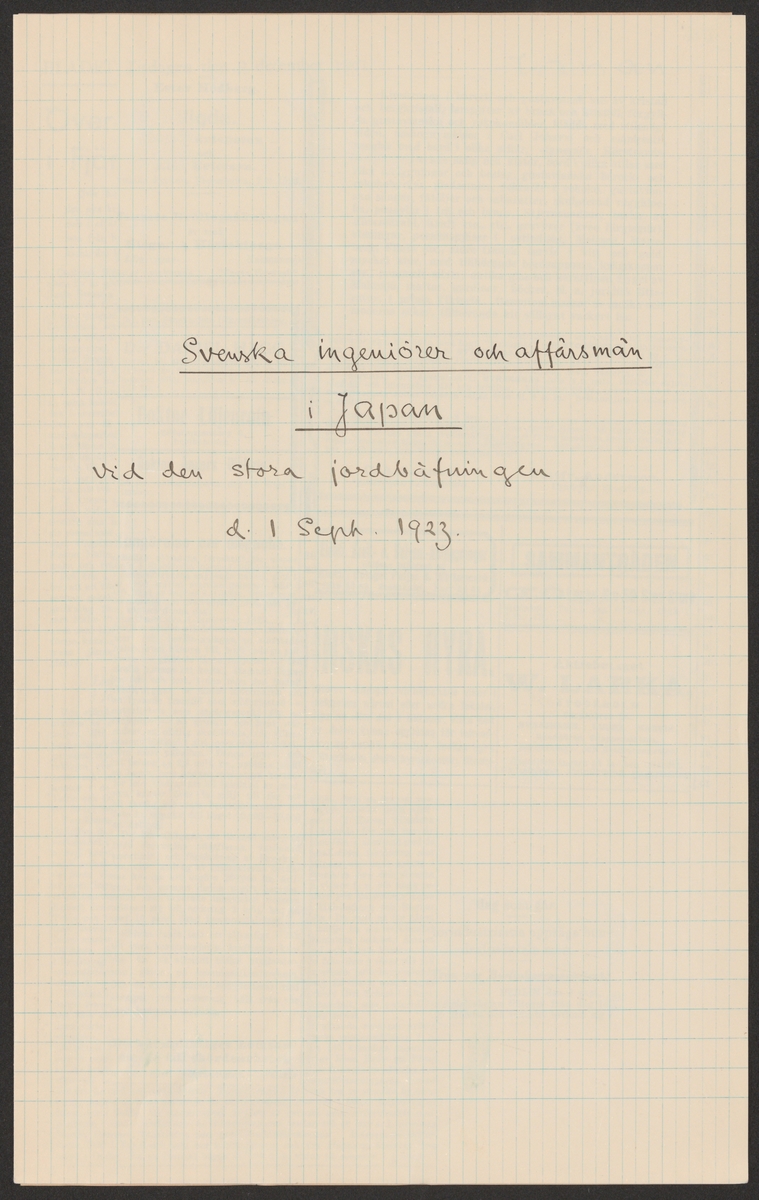 Svenska ingeniörer och affärsmän
i Japan
vid den stora jordbäfningen
d. 1 Sept. 1923.